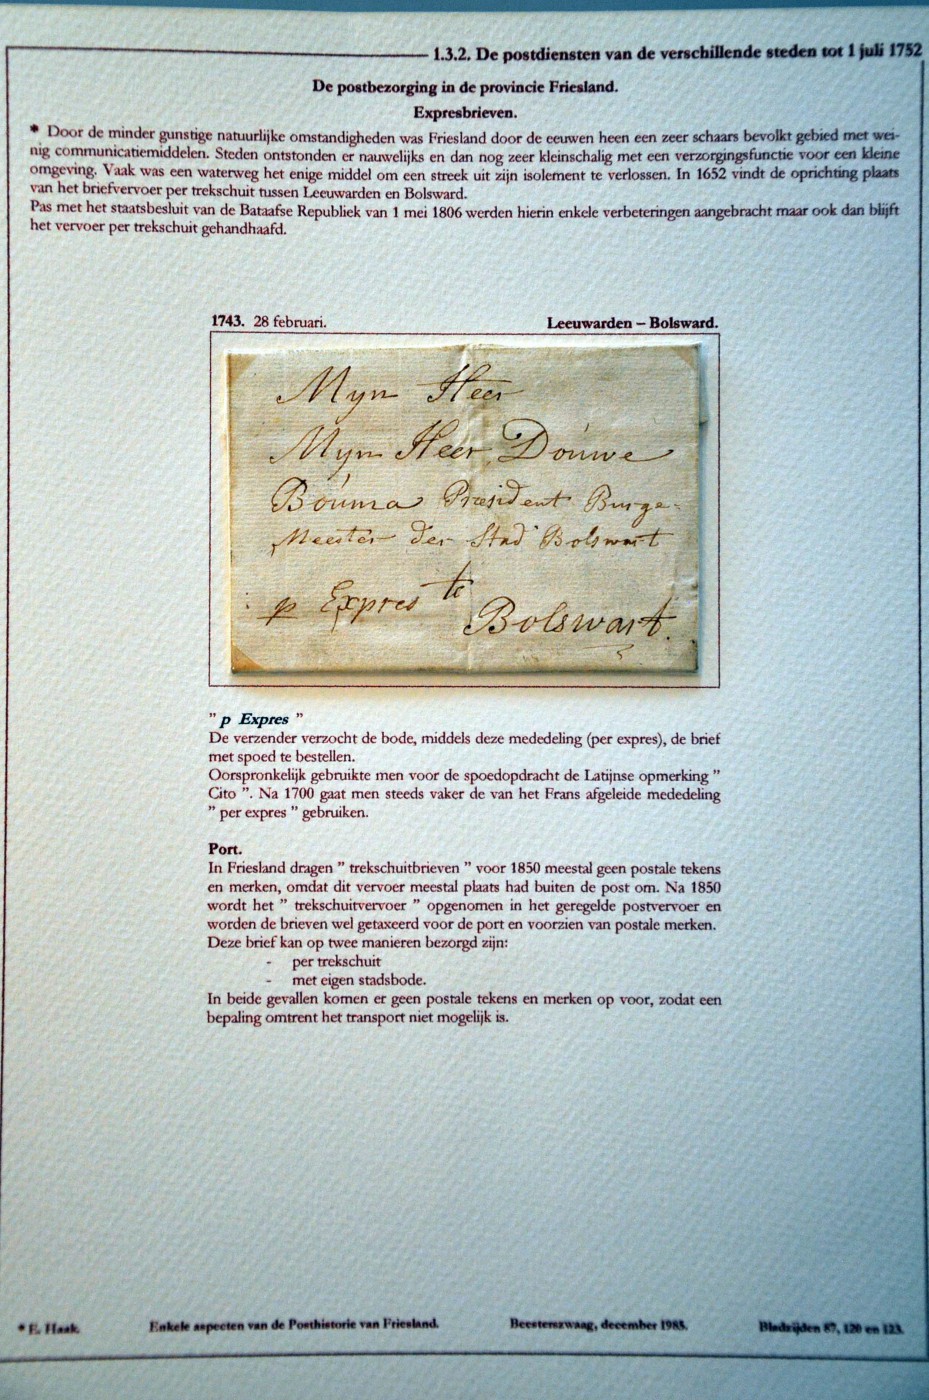 1.3.2. De postdiensten van de verschillende steden tot 1 juli 1752
De postbezorging in de provincie Friesland.
Expresbrieven.
* Door de minder gunstige natuurlijke omstandigheden was Friesland door de eeuwen heen een zeer schaars bevolkt gebied met wei-
nig communicatiemiddelen. Steden ontstonden er nauwelijks en dan nog zeer kleinschalig met een verzorgingsfunctie voor een kleine
omgeving. Vaak was een waterweg het enige middel om een streek uit zijn isolement te verlossen. In 1652 vindt de oprichting plaats
van het briefvervoer per trekschuit tussen Leeuwarden en Bolsward.
Pas met het staatsbesluit van de Bataafse Republiek van 1 mei 1806 werden hierin enkele verbeteringen aangebracht maar ook dan blijft
het vervoer per trekschuit gehandhaafd.
1743. 28 februari. Leeuwarden – Bolsward.
Myn Heer
Myn Heer Douwe
Bouma President Burge-
Meester der Stad Bolswart
p Expres te
Bolswart.
" p Expres "
De verzender verzocht de bode, middels deze mededeling (per expres), de brief
met spoed te bestellen.
Oorspronkelijk gebruikte men voor de spoedopdracht de Latijnse opmerking "
Cito ". Na 1700 gaat men steeds vaker de van het Frans afgeleide mededeling
" per expres " gebruiken.
Port.
In Friesland dragen " trekschuitbrieven " voor 1850 meestal geen postale tekens
en merken, omdat dit vervoer meestal plaats had buiten de post om. Na 1850
wordt het " trekschuitvervoer " opgenomen in het geregelde postvervoer en
worden de brieven wel getaxeerd voor de port en voorzien van postale merken.
Deze brief kan op twee manieren bezorgd zijn:
- per trekschuit
- met eigen stadsbode.
In beide gevallen komen er geen postale tekens en merken op voor, zodat een
bepaling omtrent het transport niet mogelijk is.
* E. Haak. Enkele aspecten van de Posthistorie van Friesland. Beesterszwaag, december 1983. Bladzijden 87, 120 en 123.